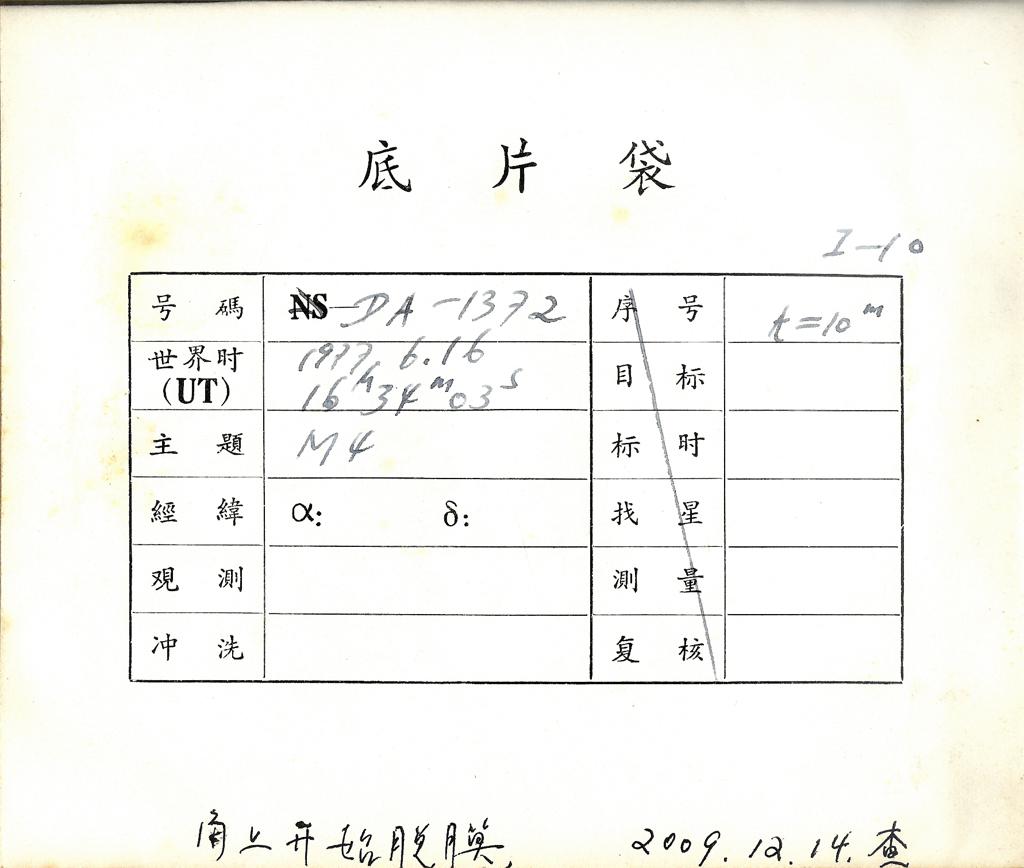 底片袋
I-10
号碼 NS-DA-1372 序号 t=10ᵐ
世界时(UT) 1977.6.16 目标
16ʰ34ᵐ03ˢ
主題 M4 标时
經緯 α: δ: 找星
观測 測量
冲洗 复核
角上开始脱膜, 2009.12.14.查